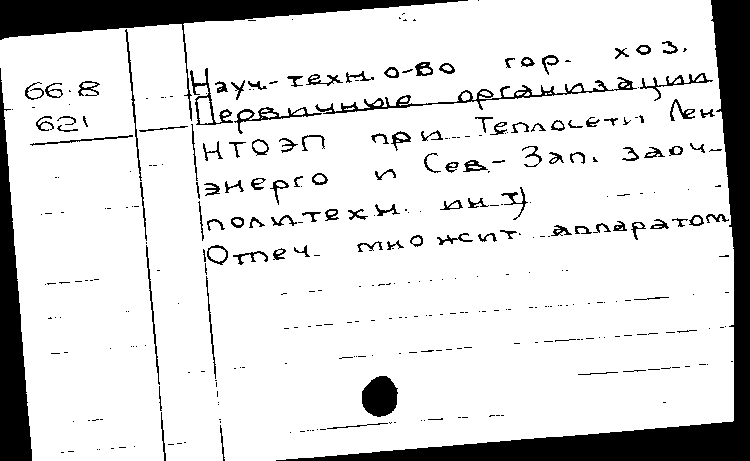 66.8
621
Науч.-техн. о-во гор. хоз.
Первичные организации
НТОЭП при Теплосети Лен-
энерго и Сев-Зап. заоч.
политехн. ин-т)
Отпеч. множит аппаратом